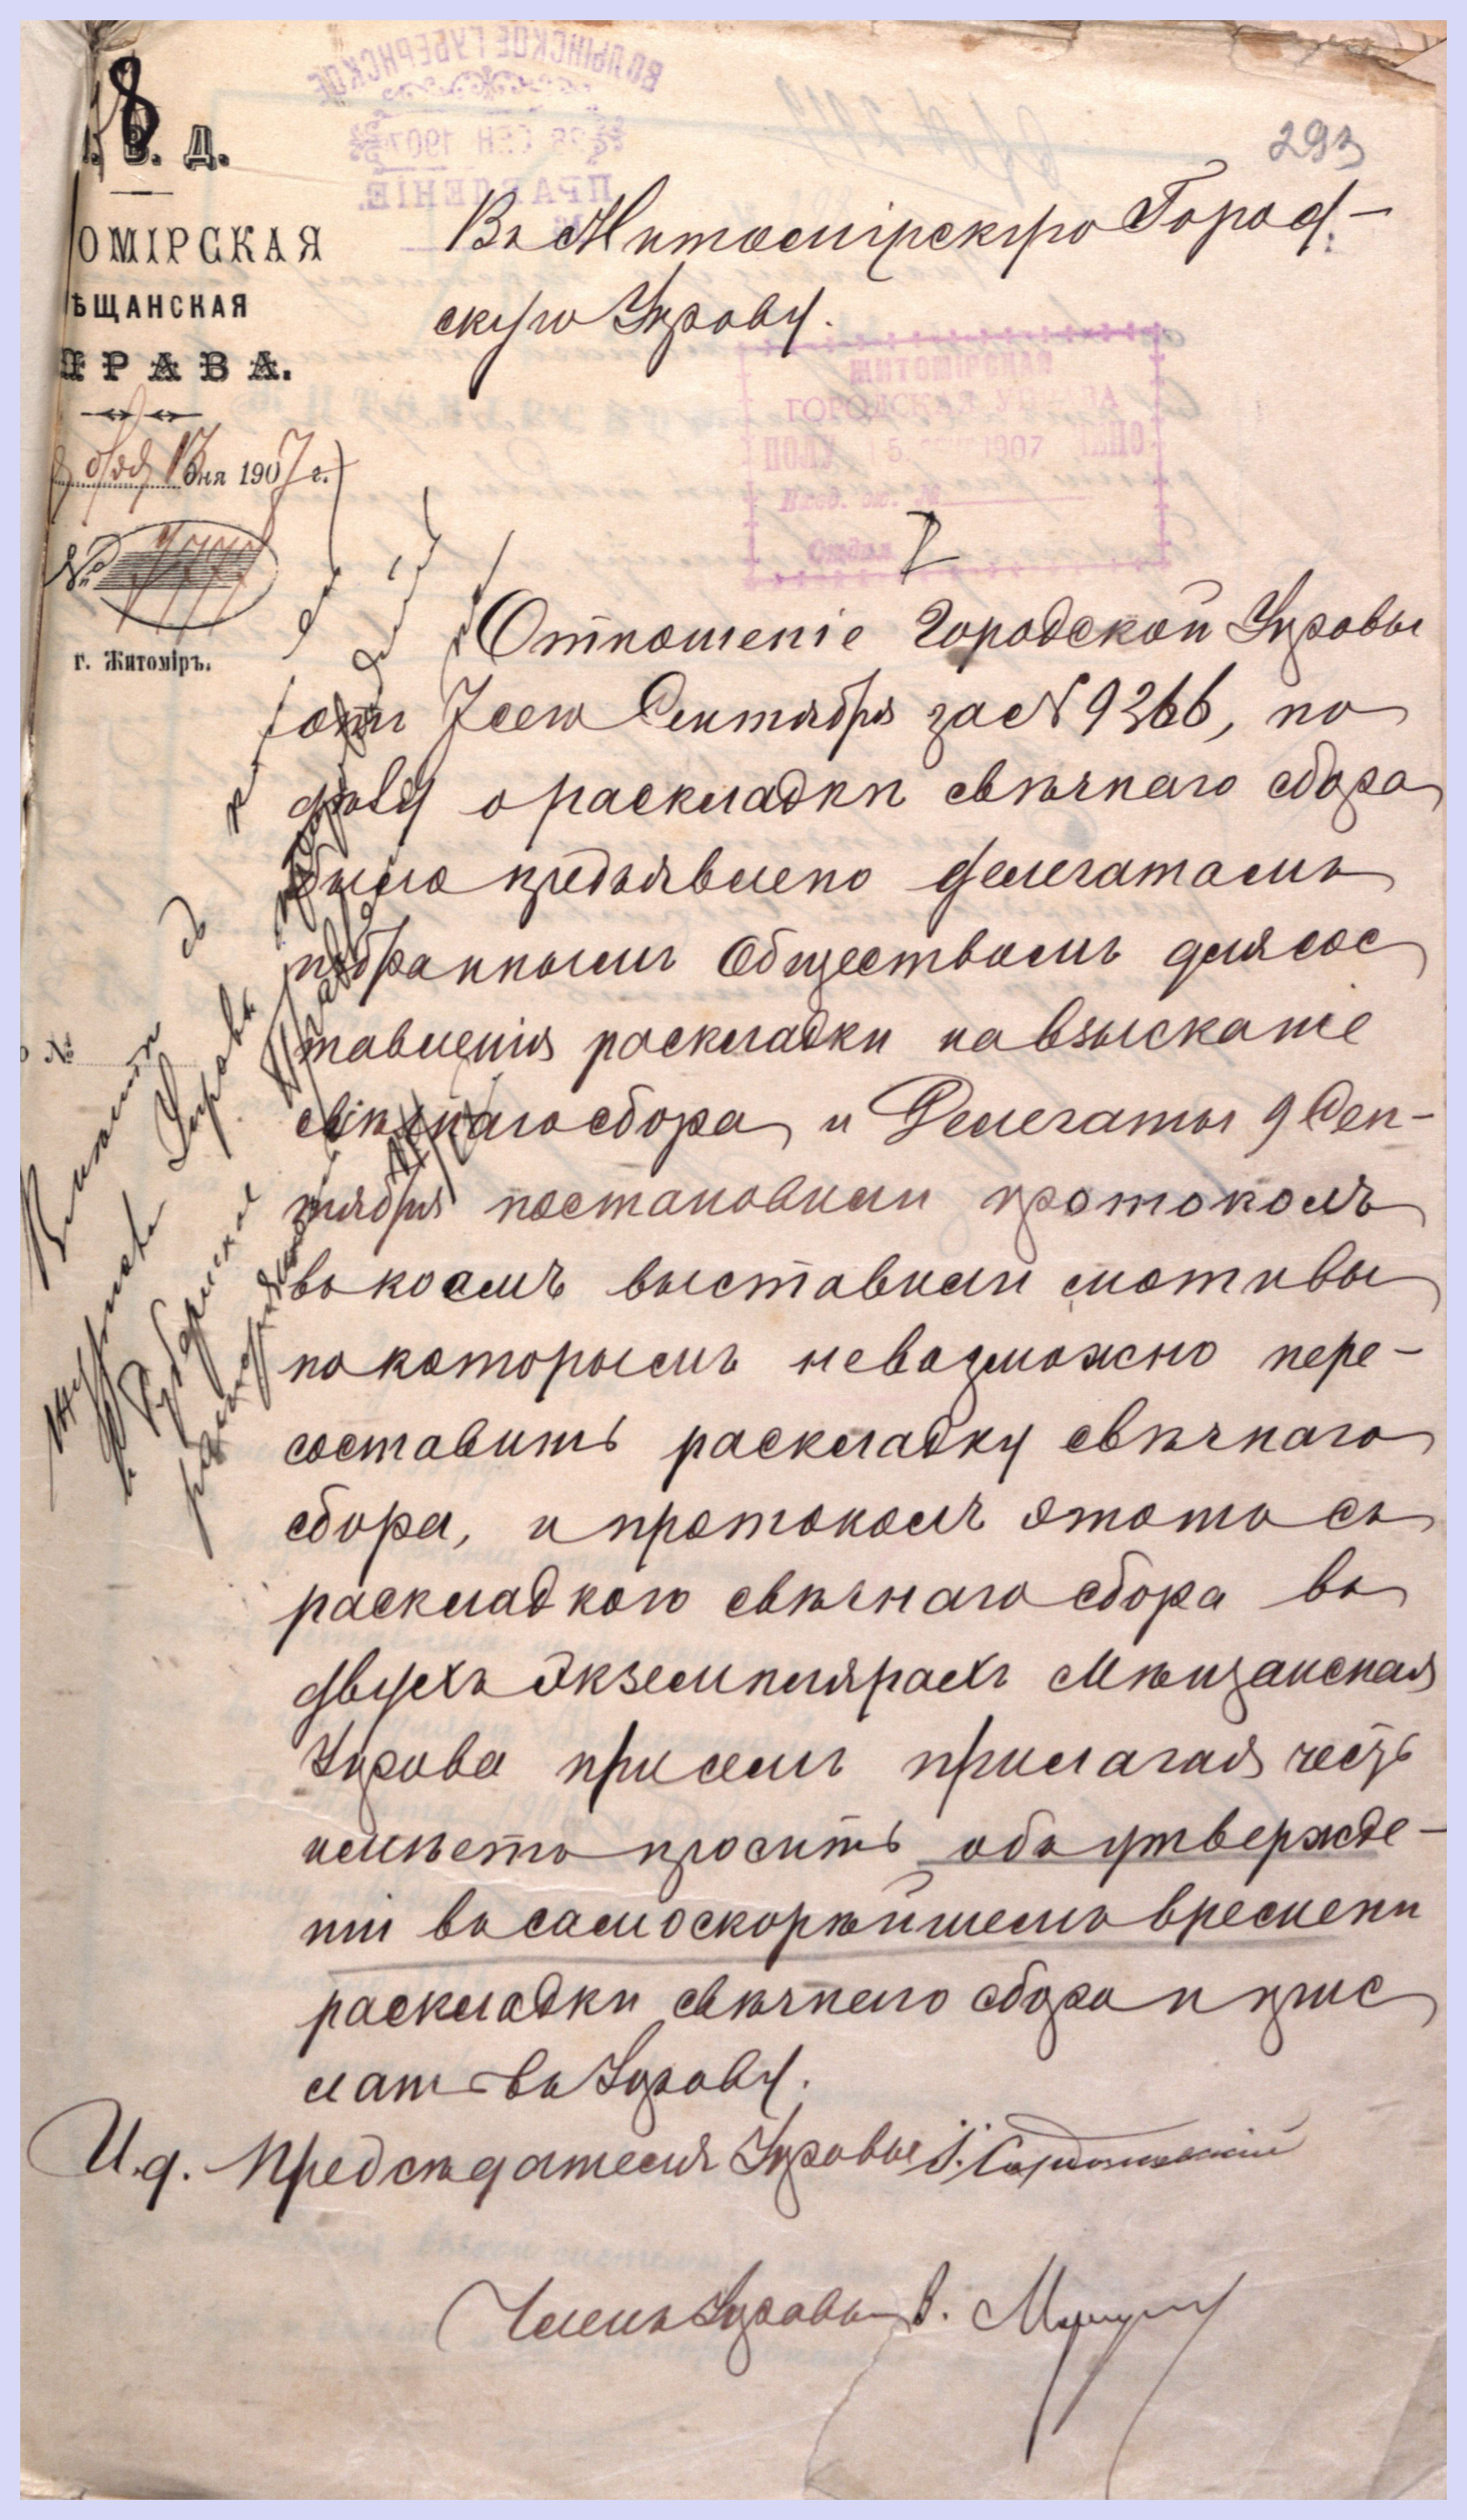 293
8
В. Д.
ОМІРСКАЯ
ѢЩАНСКАЯ
ПРАВА.
13 дня 1907 г.
№
г. Житоміръ.
№
ВОЛЫНСКОЕ ГУБЕРНСКОЕ
СЕН 1907
ПРАВЛЕНІЕ.
Въ Житомірскую Город-
скую Управу.
ЖИТОМІРСКАЯ
ГОРОДСКАЯ УПРАВА
ПОЛУ 15 1907 ЧЕНО
Вход. №
Отдѣл
Отношеніе Городской Управы
отъ 7 сего Сентября за № 9366, по
дѣлу о раскладкѣ свѣчнаго сбора
было предъявлено Делегатамъ
избраннымъ Обществомъ для сос
тавленія раскладки на взысканіе
свѣчнаго сбора, и Делегаты 9 Сен-
тября постановили протоколъ
въ коемъ выставили мотивы
по которымъ невозможно пере-
составить раскладку свѣчнаго
сбора, и протоколъ этотъ съ
раскладкою свѣчнаго сбора въ
двухъ экземплярахъ Мѣщанская
Управа при семъ прилагая честь
имѣетъ просить объ утвержде-
ніи въ самоскорѣйшемъ времени
раскладки свѣчнаго сбора и прис
лать въ Управу.
И. д. Предсѣдателя Управы І.
Членъ Управы В.
журнала Управы
въ Губернское
Правле